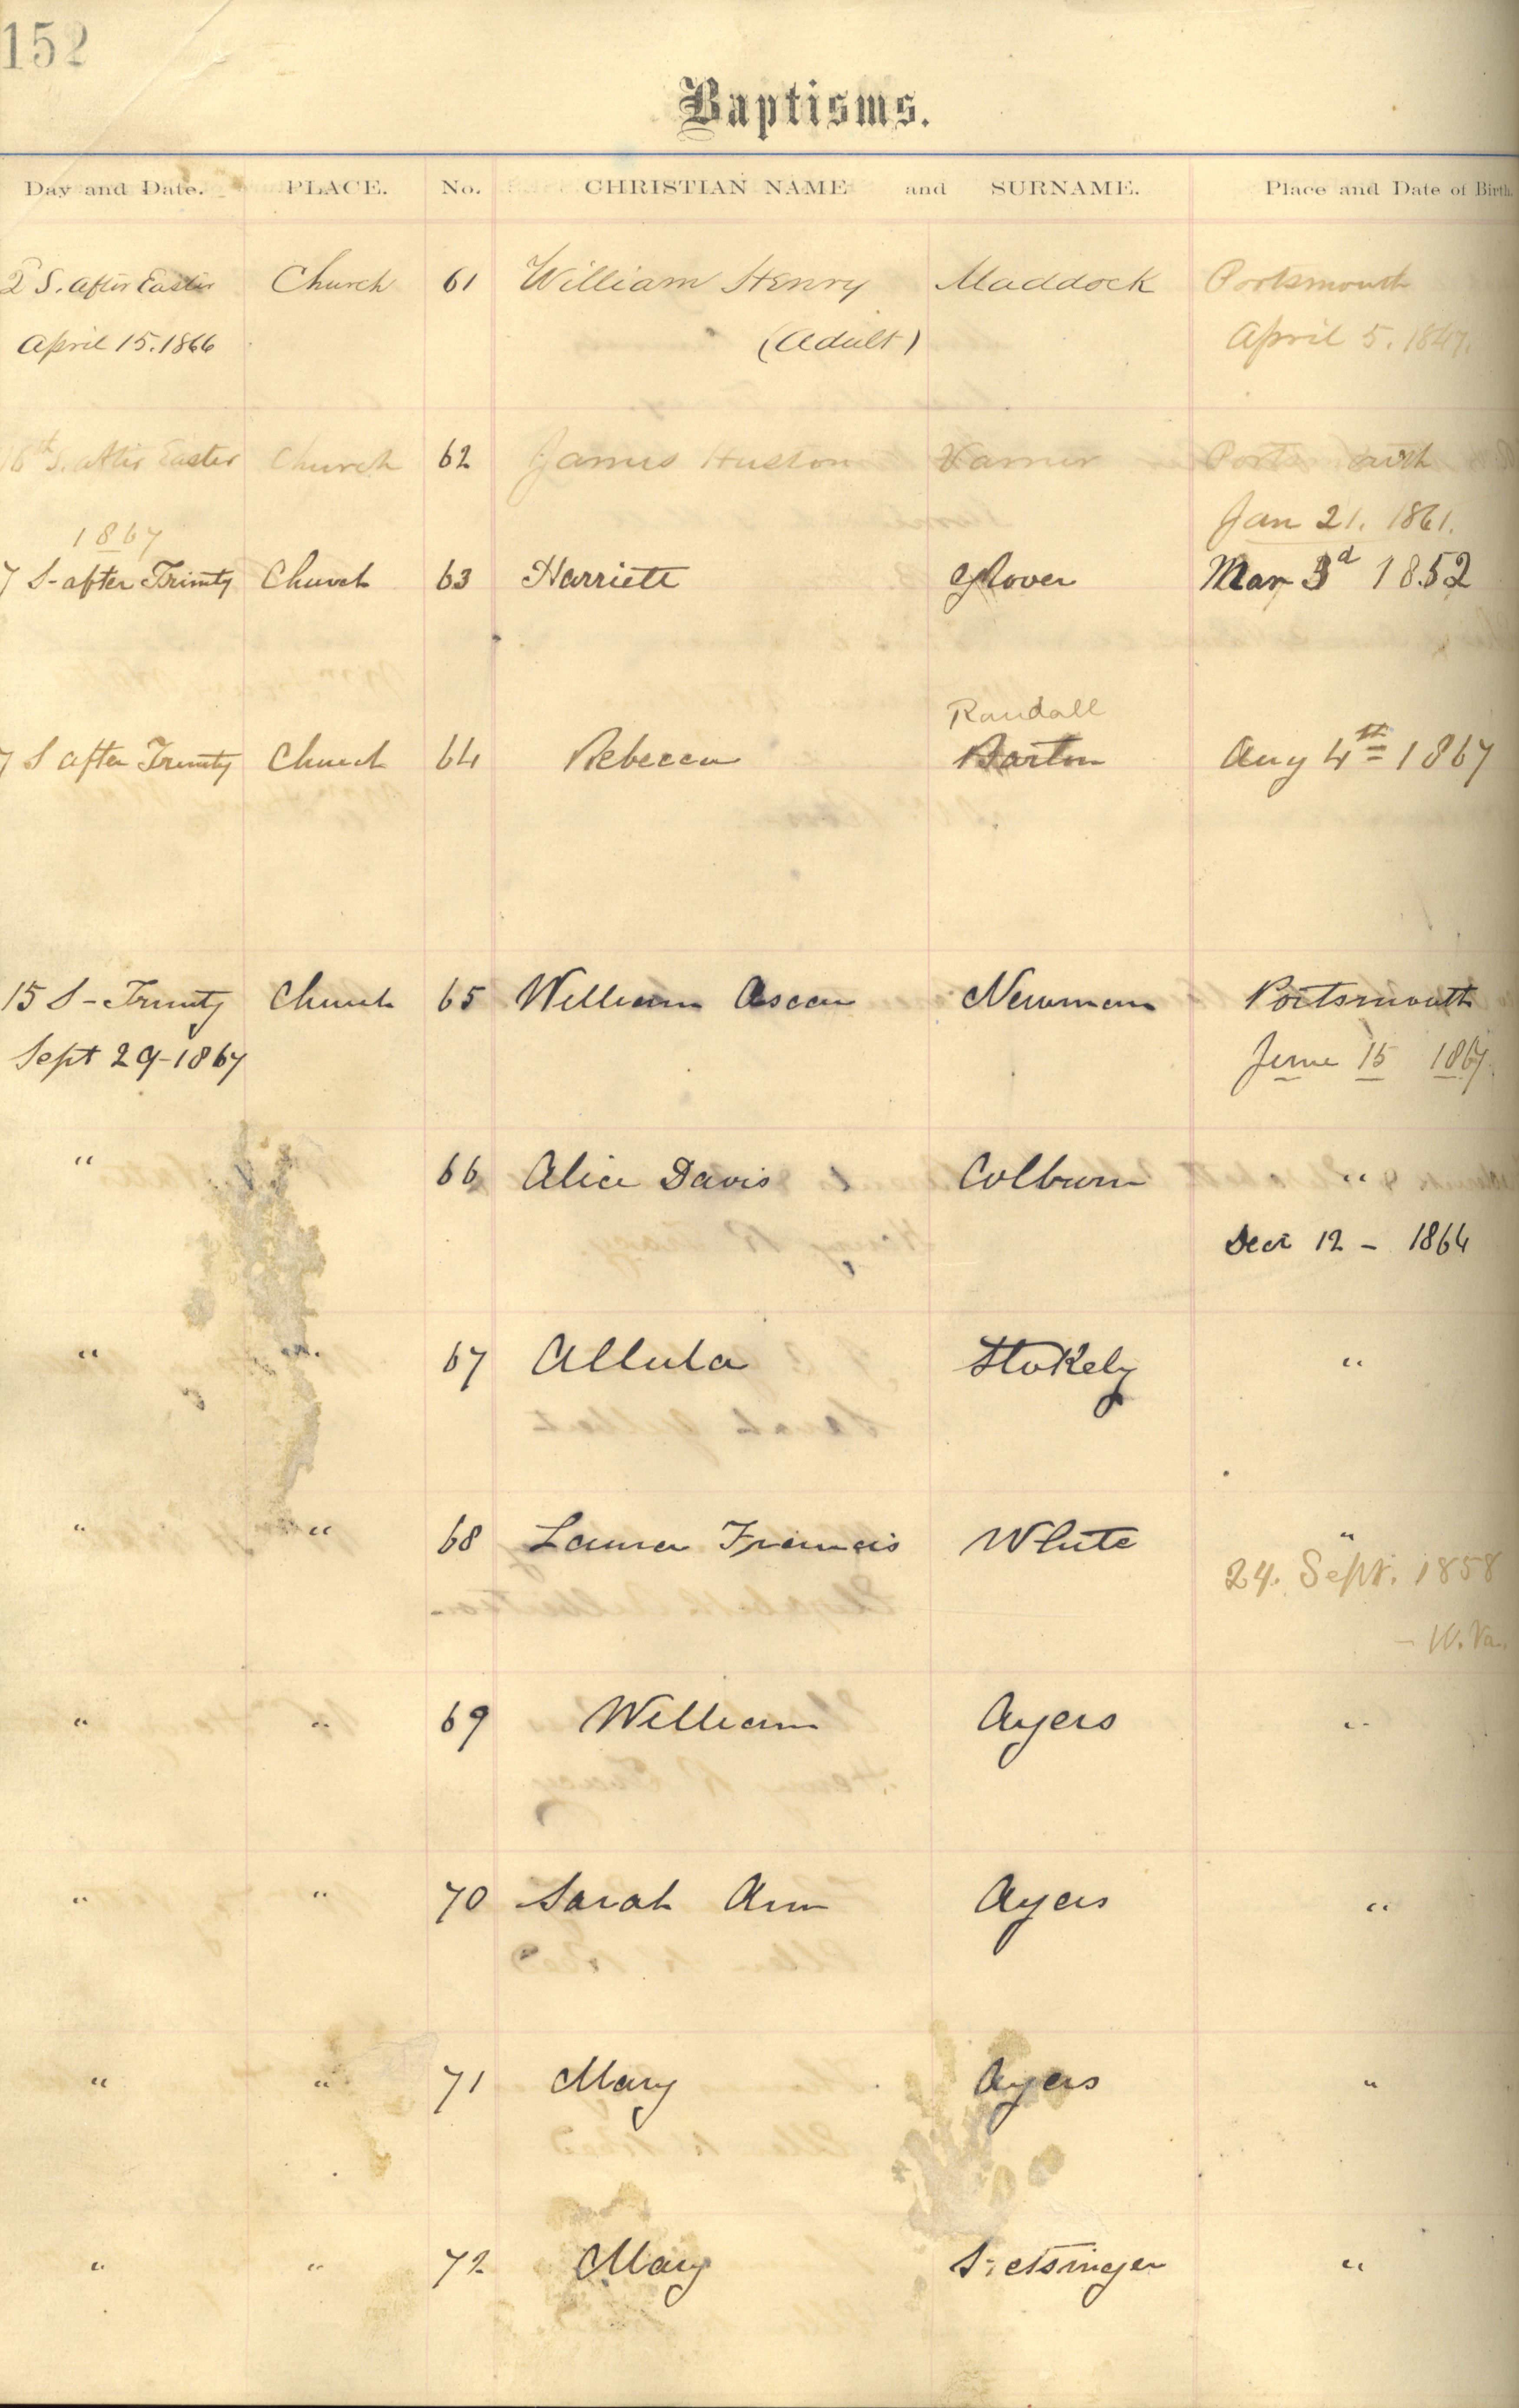 152
Baptisms.
Day and Date. PLACE. No. CHRISTIAN NAME and SURNAME. Place and Date of Birth.
2d S. after Easter Church 61 William Henry Maddock Portsmouth
April 15. 1866 (Adult) April 5. 1847.
S. after Easter Church 62 James Huston Varner Portsmouth
Jan 21. 1861.
1867
7 S- after Trinity Church 63 Harriett Glover Mar 3d 1852
Randall
7 S after Trinity Church 64 Rebecca Barton Aug 4th 1867
15 S - Trinity Church 65 William Oscar Newman Portsmouth
Sept 29-1867 June 15 1867.
" 66 Alice Davis Colburn "
Dec 12 - 1864
" " 67 Allula Stokely "
" " 68 Laura Francis White "
24. Sept. 1858
- W. Va.
" " 69 William Ayers "
" " 70 Sarah Ann Ayers "
" " 71 Mary Ayers "
" " 72 Mary "